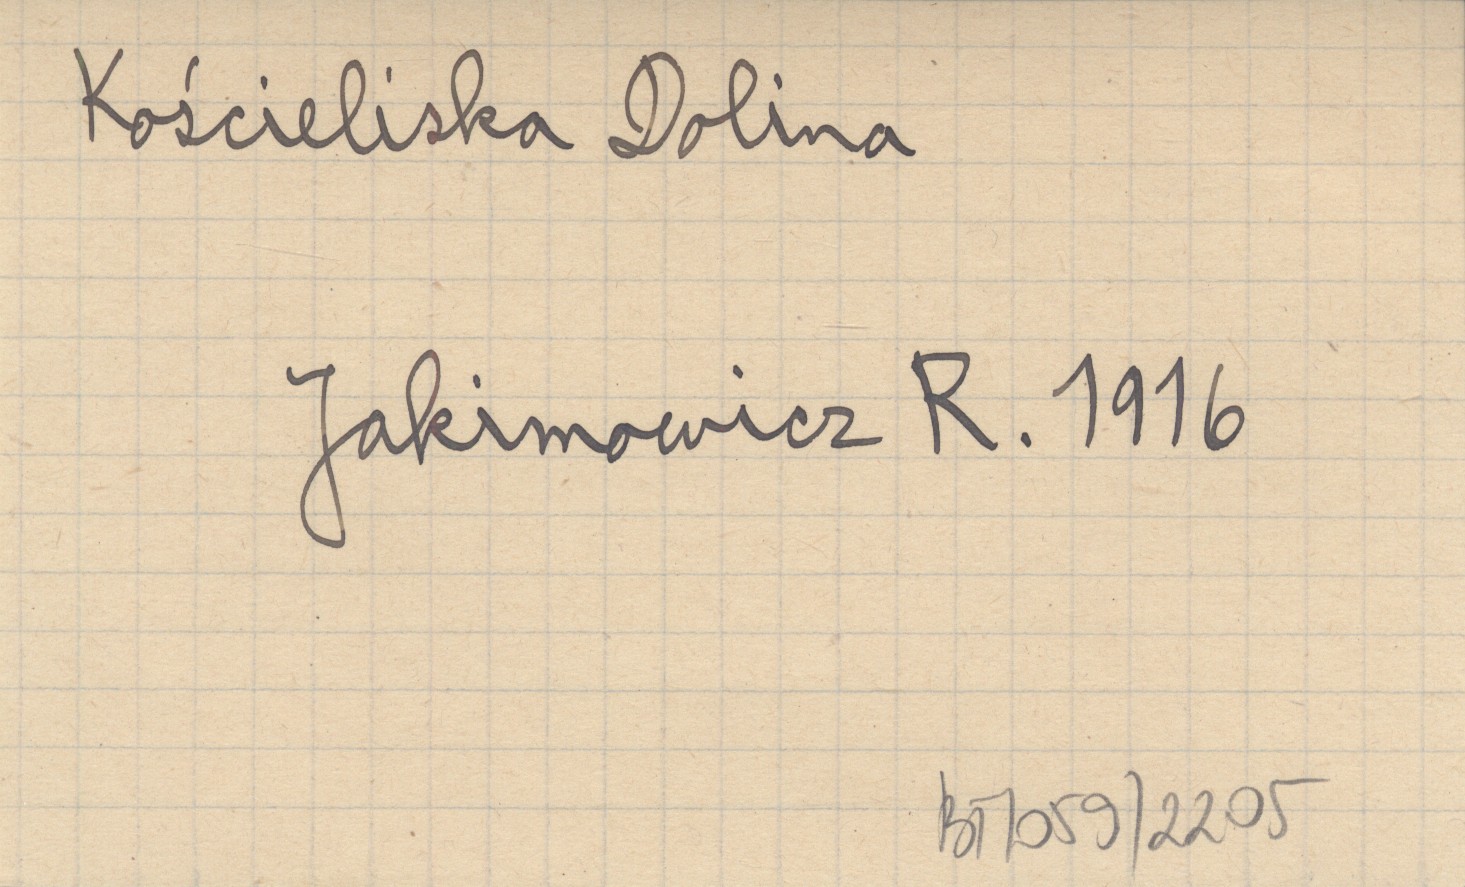 Kościeliska Dolina
Jakimowicz R. 1916
BT/059/2205